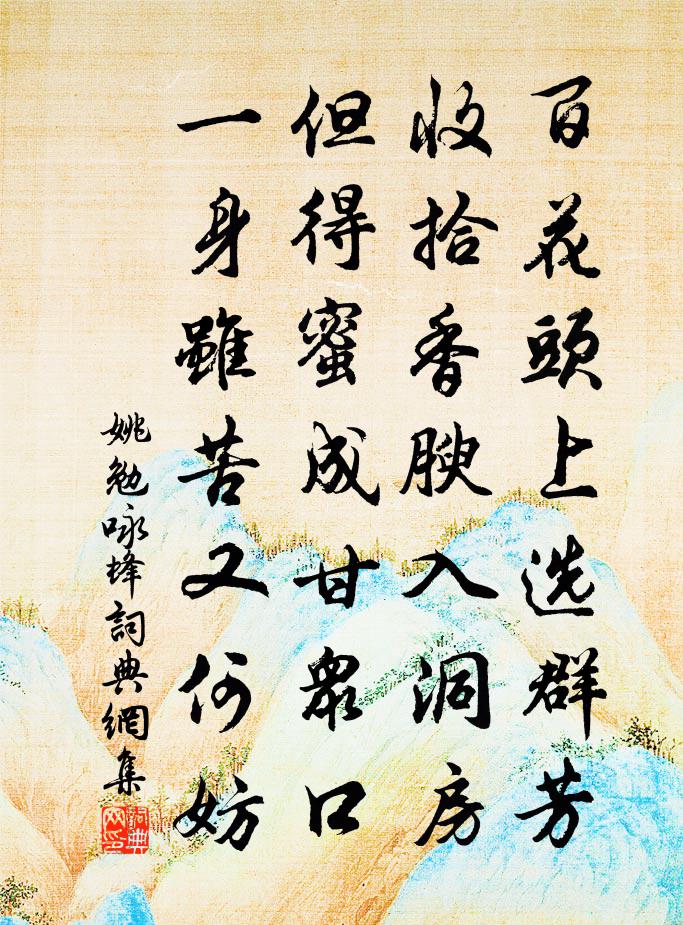 百花頭上选群芳
收拾香腴入洞房
但得蜜成甘衆口
一身雖苦又何妨
姚勉咏蜂詞典網集
詞典网印